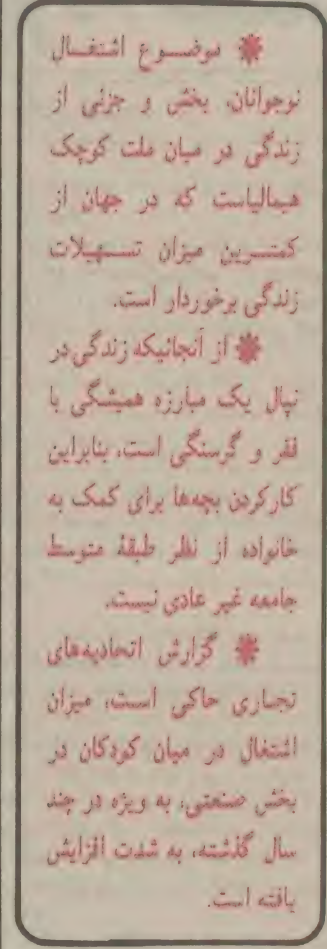 ❋ موضوع اشتغال
نوجوانان، بخش و جزئی از
زندگی در میان ملت کوچک
هیمالیاست که در جهان از
کمترین میزان تسهیلات
زندگی برخوردار است.
❋ از آنجائیکه زندگی در
نپال یک مبارزه همیشگی با
فقر و گرسنگی است، بنابراین
کارکردن بچه‌ها برای کمک به
خانواده از نظر طبقهٔ متوسط
جامعه غیر عادی نیست.
❋ گزارش اتحادیه‌های
تجاری حاکی است، میزان
اشتغال در میان کودکان در
بخش صنعتی، به ویژه در چند
سال گذشته، به شدت افزایش
یافته است.